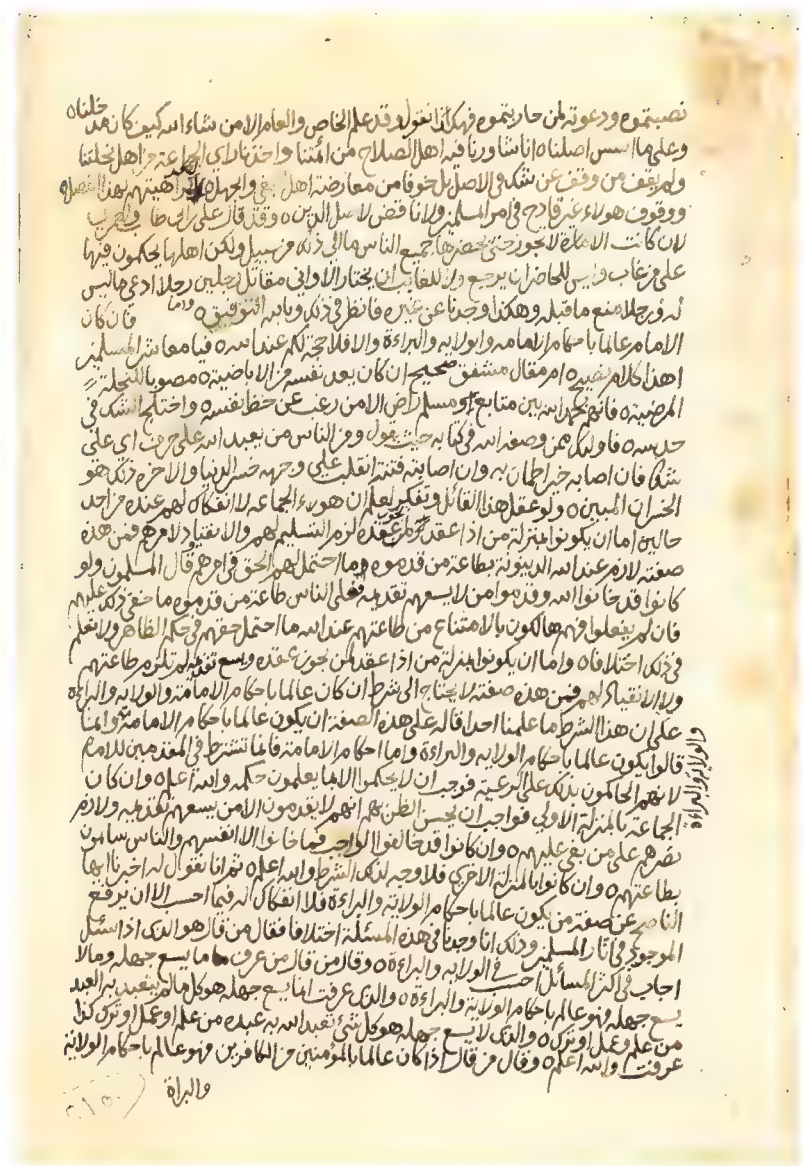 نصبتموه ودعوته لمن حاربتموه فهكذا نقول وقد علم الخاص والعام الا من شاء الله كيف كان مدخلناه
وعلى ما اسس اصلناه انا شاورنا فيه اهل الصلاح من امتنا واخذنا راى الجماعة من اهل نحلتنا
ولم يقف من وقف عن شك في الاصل بل خوفا من معارضة اهل بغي والجهلة لكراهيتهم بهذا الفصل ٥
ووقوف هولاء غير قادح في امر المسلمين ولا ناقض لاصل الدين ٥ وقد قال علي بن ابي طالب
لان كانت الامامة لا تجوز حتى يحضرها جميع الناس ما الى ذلك من سبيل ولكن اهلها يحكمون فيها
على من غاب وليس للحاضر ان يرجع ولا للغائب ان يختار الا واني مقاتل رجلين رجلا ادعى ما ليس
له ورجلا منع ما قبله وهكذا وجدنا عن غيره فانظر في ذلك وبالله التوفيق ٥ واما فان كان
الامام عالما باحكام الامامة والولاية والبراءة والا فلا حجة لكم عند الله ٥ فيا معاشر المسلمين
اهذا كلام نصيحة ام مقال مشفق صحيح ان كان يعد نفسه من الاباضية ٥ مصوبا للنحلة
المرضية ٥ فانهم بحمد الله بين متابع ومسلم راض الا من رغب عن حظ نفسه ٥ واختلج الشك في
حدسه ٥ فاولئك ممن وصفه الله في كتابه حيث يقول ومن الناس من يعبد الله على حرف اي على
شك فان اصابه خير اطمان به وان اصابته فتنة انقلب على وجهه خسر الدنيا والاخرة ذلك هو
الخسران المبين ٥ ولو عقل هذا القائل وتفكر لعلم ان هولاء الجماعة لا انفكاك لهم عنده من احد
حالين اما ان يكونوا بمنزلة من اذا عقد لمن يجوز عقده لزم التسليم لهم والانقياد لامرهم فمن هذه
صفته لازم عند الله الدينونة بطاعة من قدموه وما احتمل لهم الحق في امرهم وقال المسلمون ولو
كانوا قد خانوا الله وقدموا من لا يسعهم تقديمه فعلى الناس طاعة من قدموه ما خفي ذلك عليهم
فان لم يفعلوا فهم هالكون بالامتناع من طاعتهم عند الله ما احتمل حقهم في حكم الظاهر ولا نعلم
في ذلك اختلافا ٥ واما ان يكونوا بمنزلة من اذا عقد لمن يجوز عقده ويسع تقديمه لم تلزم طاعتهم
ولا الانقياد لهم فمن هذه صفته لا يحتاج الى شرط ان كان عالما باحكام الامامة والولاية والبراءة
على ان هذا الشرط ما علمنا احدا قاله على هذه الصفة ان يكون عالما باحكام الامامة وانما
قالوا يكون عالما باحكام الولاية والبراءة واما احكام الامامة فانما تشترط في المقدمين للامام
والولاية والبراءة
لانهم الحاكمون بذلك على الرعية فوجب ان لا يحكموا الا بما يعلمون حكمه والله اعلم ٥ وان كان
الجماعة بالمنزلة الاولى فواجب ان يحسن الظن بهم انهم لا يقدمون الا من يسعهم تقديمه ولازم
نصرهم على من بغى عليهم ٥ وان كانوا قد خالفوا الواجب فما خانوا الا انفسهم والناس سالمون
بطاعتهم ٥ وان كانوا بالمنزلة الاخرى فلا وجه لذلك الشرط والله اعلم ٥ ثم انا نقول له اخبرنا ايها
الناصح عن صفة من يكون عالما باحكام الولاية والبراءة فلا انفكاك له فيما احسب الا ان يرفع
الموجود في اثار المسلمين وذلك انا وجدنا في هذه المسئلة اختلافا فقال من قال هو الذى اذا سئل
اجاب في اكثر المسائل احسب في الولاية والبراءة ٥ وقال من قال من عرف ما يسع جهله وما لا
يسع جهله فهو عالم باحكام الولاية والبراءة ٥ والذى عرفت انما يسع جهله هو كل ما لم يتعبد به العبد
من علم وعمل او ترك ٥ والذى لا يسع جهله هو كل شيء تعبد الله به عبده من علم او عمل او ترك كذا
عرفت والله اعلم ٥ وقال من قال اذا كان عالما بالمؤمنين من الكافرين فهو عالم باحكام الولاية
والبراة